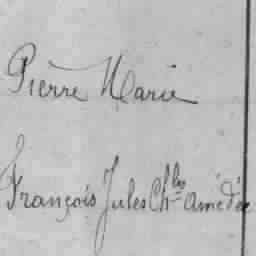 Pierre Marie
François Jules Chles Amédée